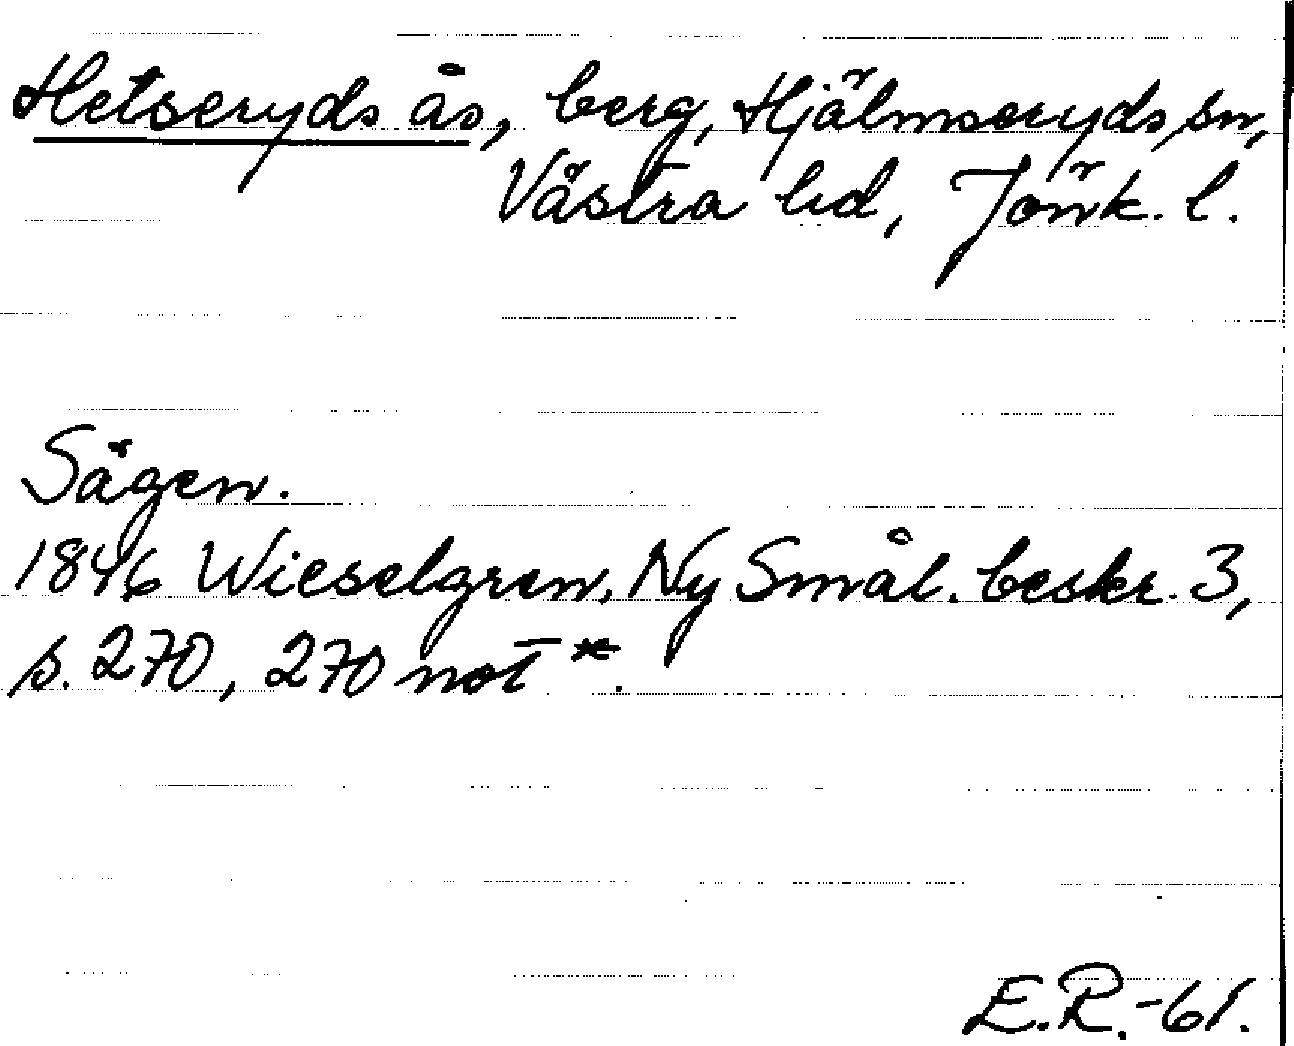 Hetseryds ås, berg, Hjälmseryds sn,
Västra hd, Jönk. l.
Sägen.
1846 Wieselgren, Ny Smål. beskr. 3,
s. 270, 270 not *.
E.R.-61.